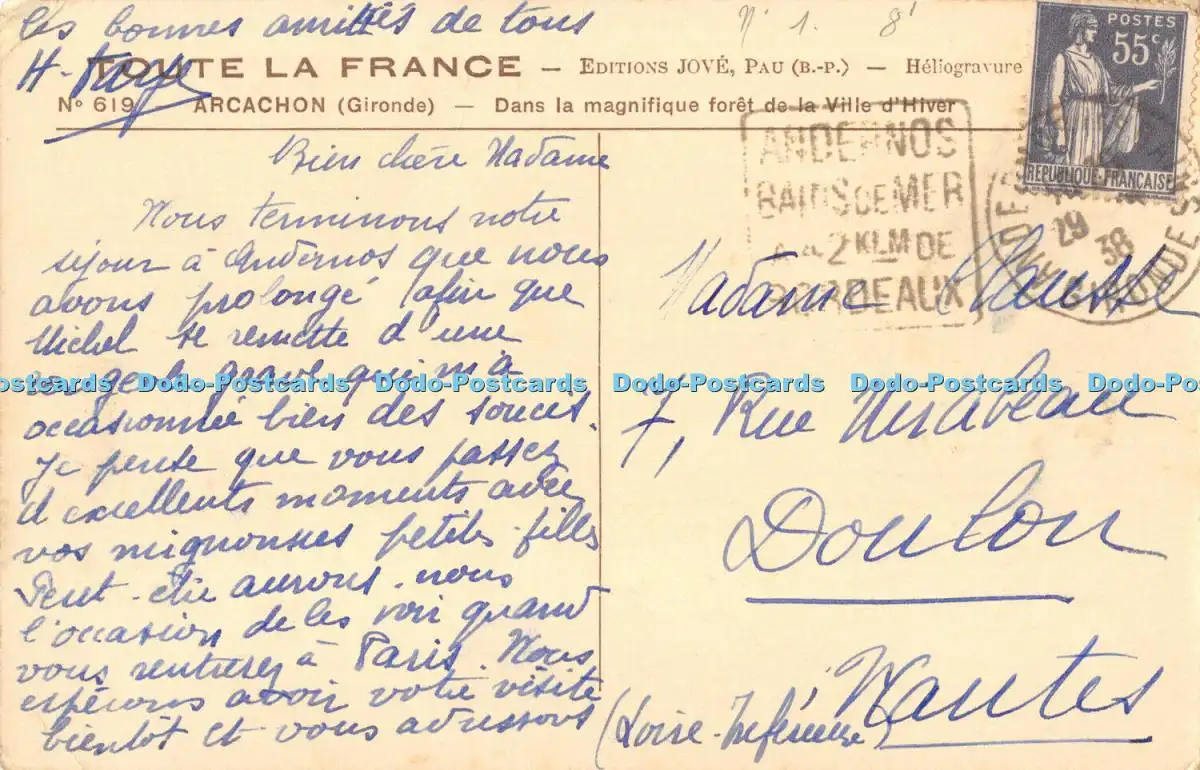 les bonnes amitiés de tous
H.
N° 1. 8'
TOUTE LA FRANCE — EDITIONS JOVÉ, PAU (B.-P.) — Héliogravure
N° 619 ARCACHON (Gironde) — Dans la magnifique forêt de la Ville d'Hiver
Bien chère Madame
Nous terminons notre
séjour à Andernos que nous
avons prolongé afin que
Michel se remette d'une
rougeole grave qui m'a
occasionnée bien des soucis.
Je pense que vous passez
d'excellents moments avec
vos mignonnes petites-filles
Peut-être aurons-nous
l'occasion de les voir quand
vous rentrerez à Paris. Nous
espérons avoir votre visite
bientôt et vous adressons
POSTES
55c
REPUBLIQUE FRANÇAISE
ANDERNOS
BAINS DE MER
A 42 KLM DE
BORDEAUX
29
38
Madame
7, Rue Mirabeau
Doulon
Nantes
(Loire-Inférieure)
Dodo-Postcards Dodo-Postcards Dodo-Postcards Dodo-Postcards Dodo-Postcards Dodo-Po